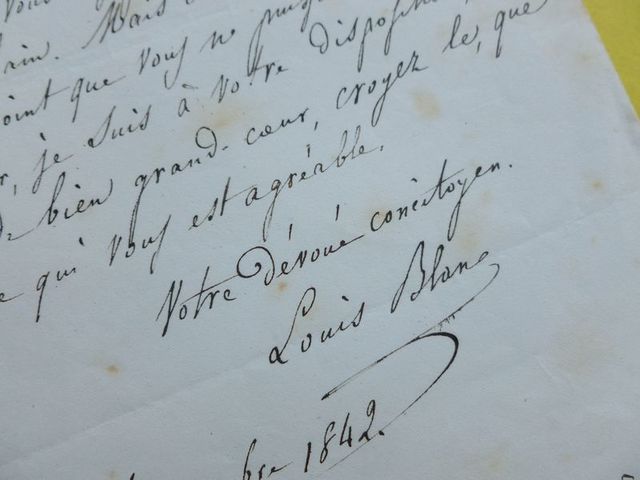 vous
rien. Mais
point que vous ne
je suis à votre
bien grand-cœur, croyez le, que
qui vous est agréable.
Votre dévoué concitoyen.
Louis Blanc
bre 1842.